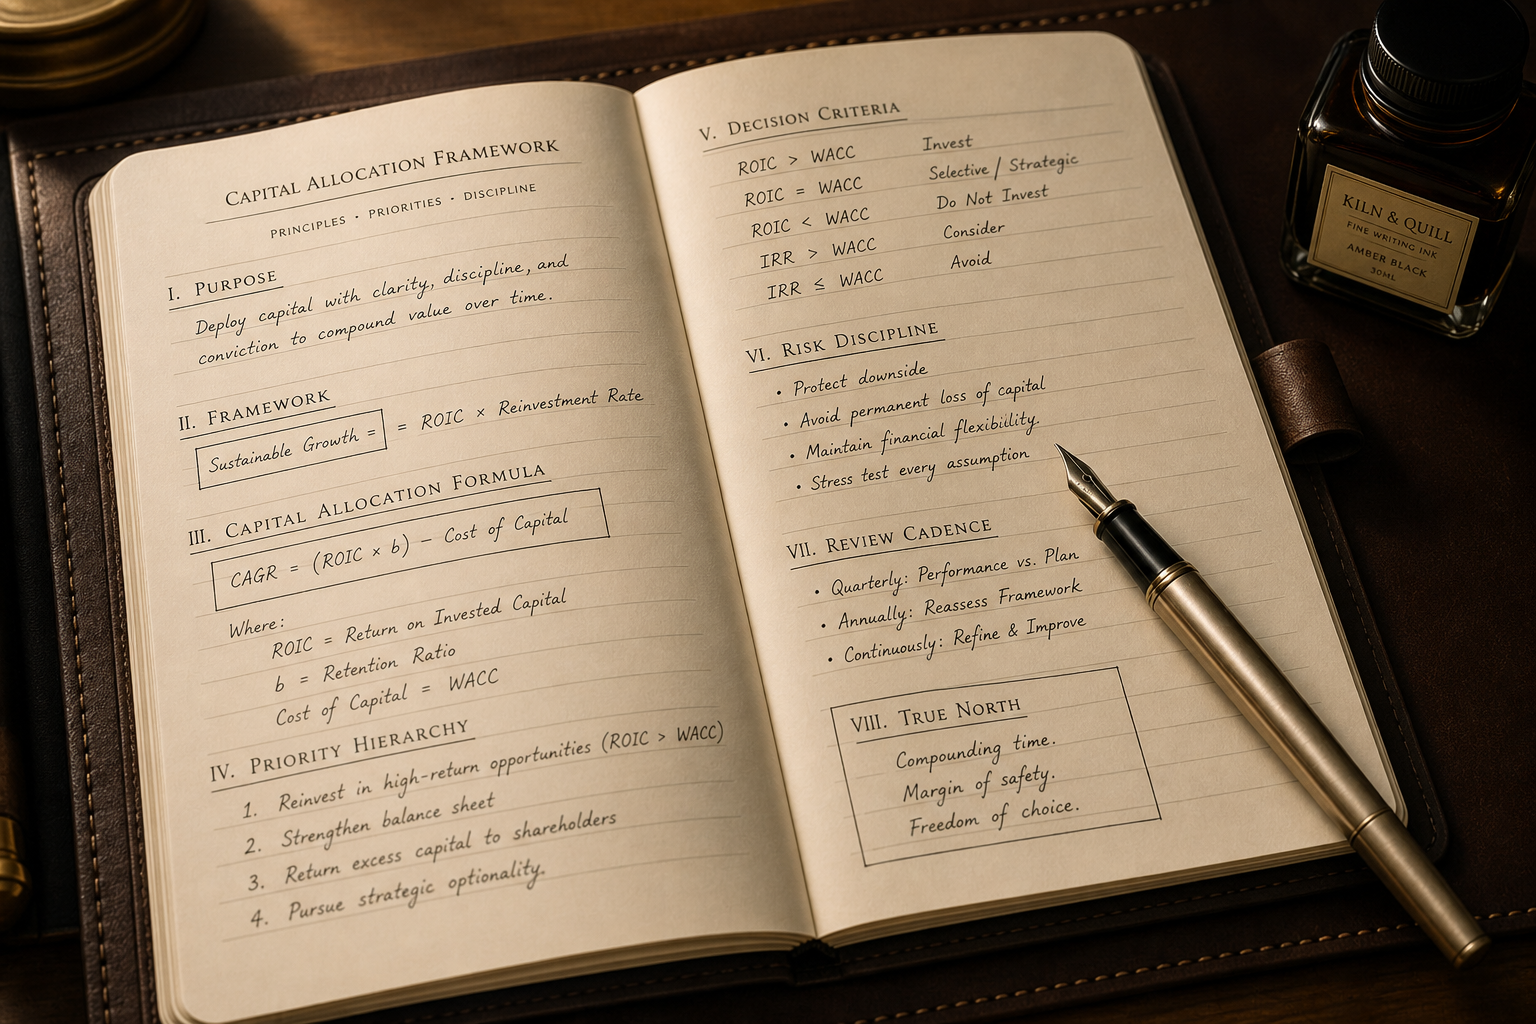 CAPITAL ALLOCATION FRAMEWORK
PRINCIPLES • PRIORITIES • DISCIPLINE
I. PURPOSE
Deploy capital with clarity, discipline, and
conviction to compound value over time.
II. FRAMEWORK
Sustainable Growth = = ROIC × Reinvestment Rate
III. CAPITAL ALLOCATION FORMULA
CAGR = (ROIC × b) – Cost of Capital
Where:
ROIC = Return on Invested Capital
b = Retention Ratio
Cost of Capital = WACC
IV. PRIORITY HIERARCHY
1. Reinvest in high-return opportunities (ROIC > WACC)
2. Strengthen balance sheet
3. Return excess capital to shareholders
4. Pursue strategic optionality.
V. DECISION CRITERIA
ROIC > WACC Invest
ROIC = WACC Selective / Strategic
ROIC < WACC Do Not Invest
IRR > WACC Consider
IRR ≤ WACC Avoid
VI. RISK DISCIPLINE
• Protect downside
• Avoid permanent loss of capital
• Maintain financial flexibility.
• Stress test every assumption
VII. REVIEW CADENCE
• Quarterly: Performance vs. Plan
• Annually: Reassess Framework
• Continuously: Refine & Improve
VIII. TRUE NORTH
Compounding time.
Margin of safety.
Freedom of choice.
KILN & QUILL
FINE WRITING INK
AMBER BLACK
30ML